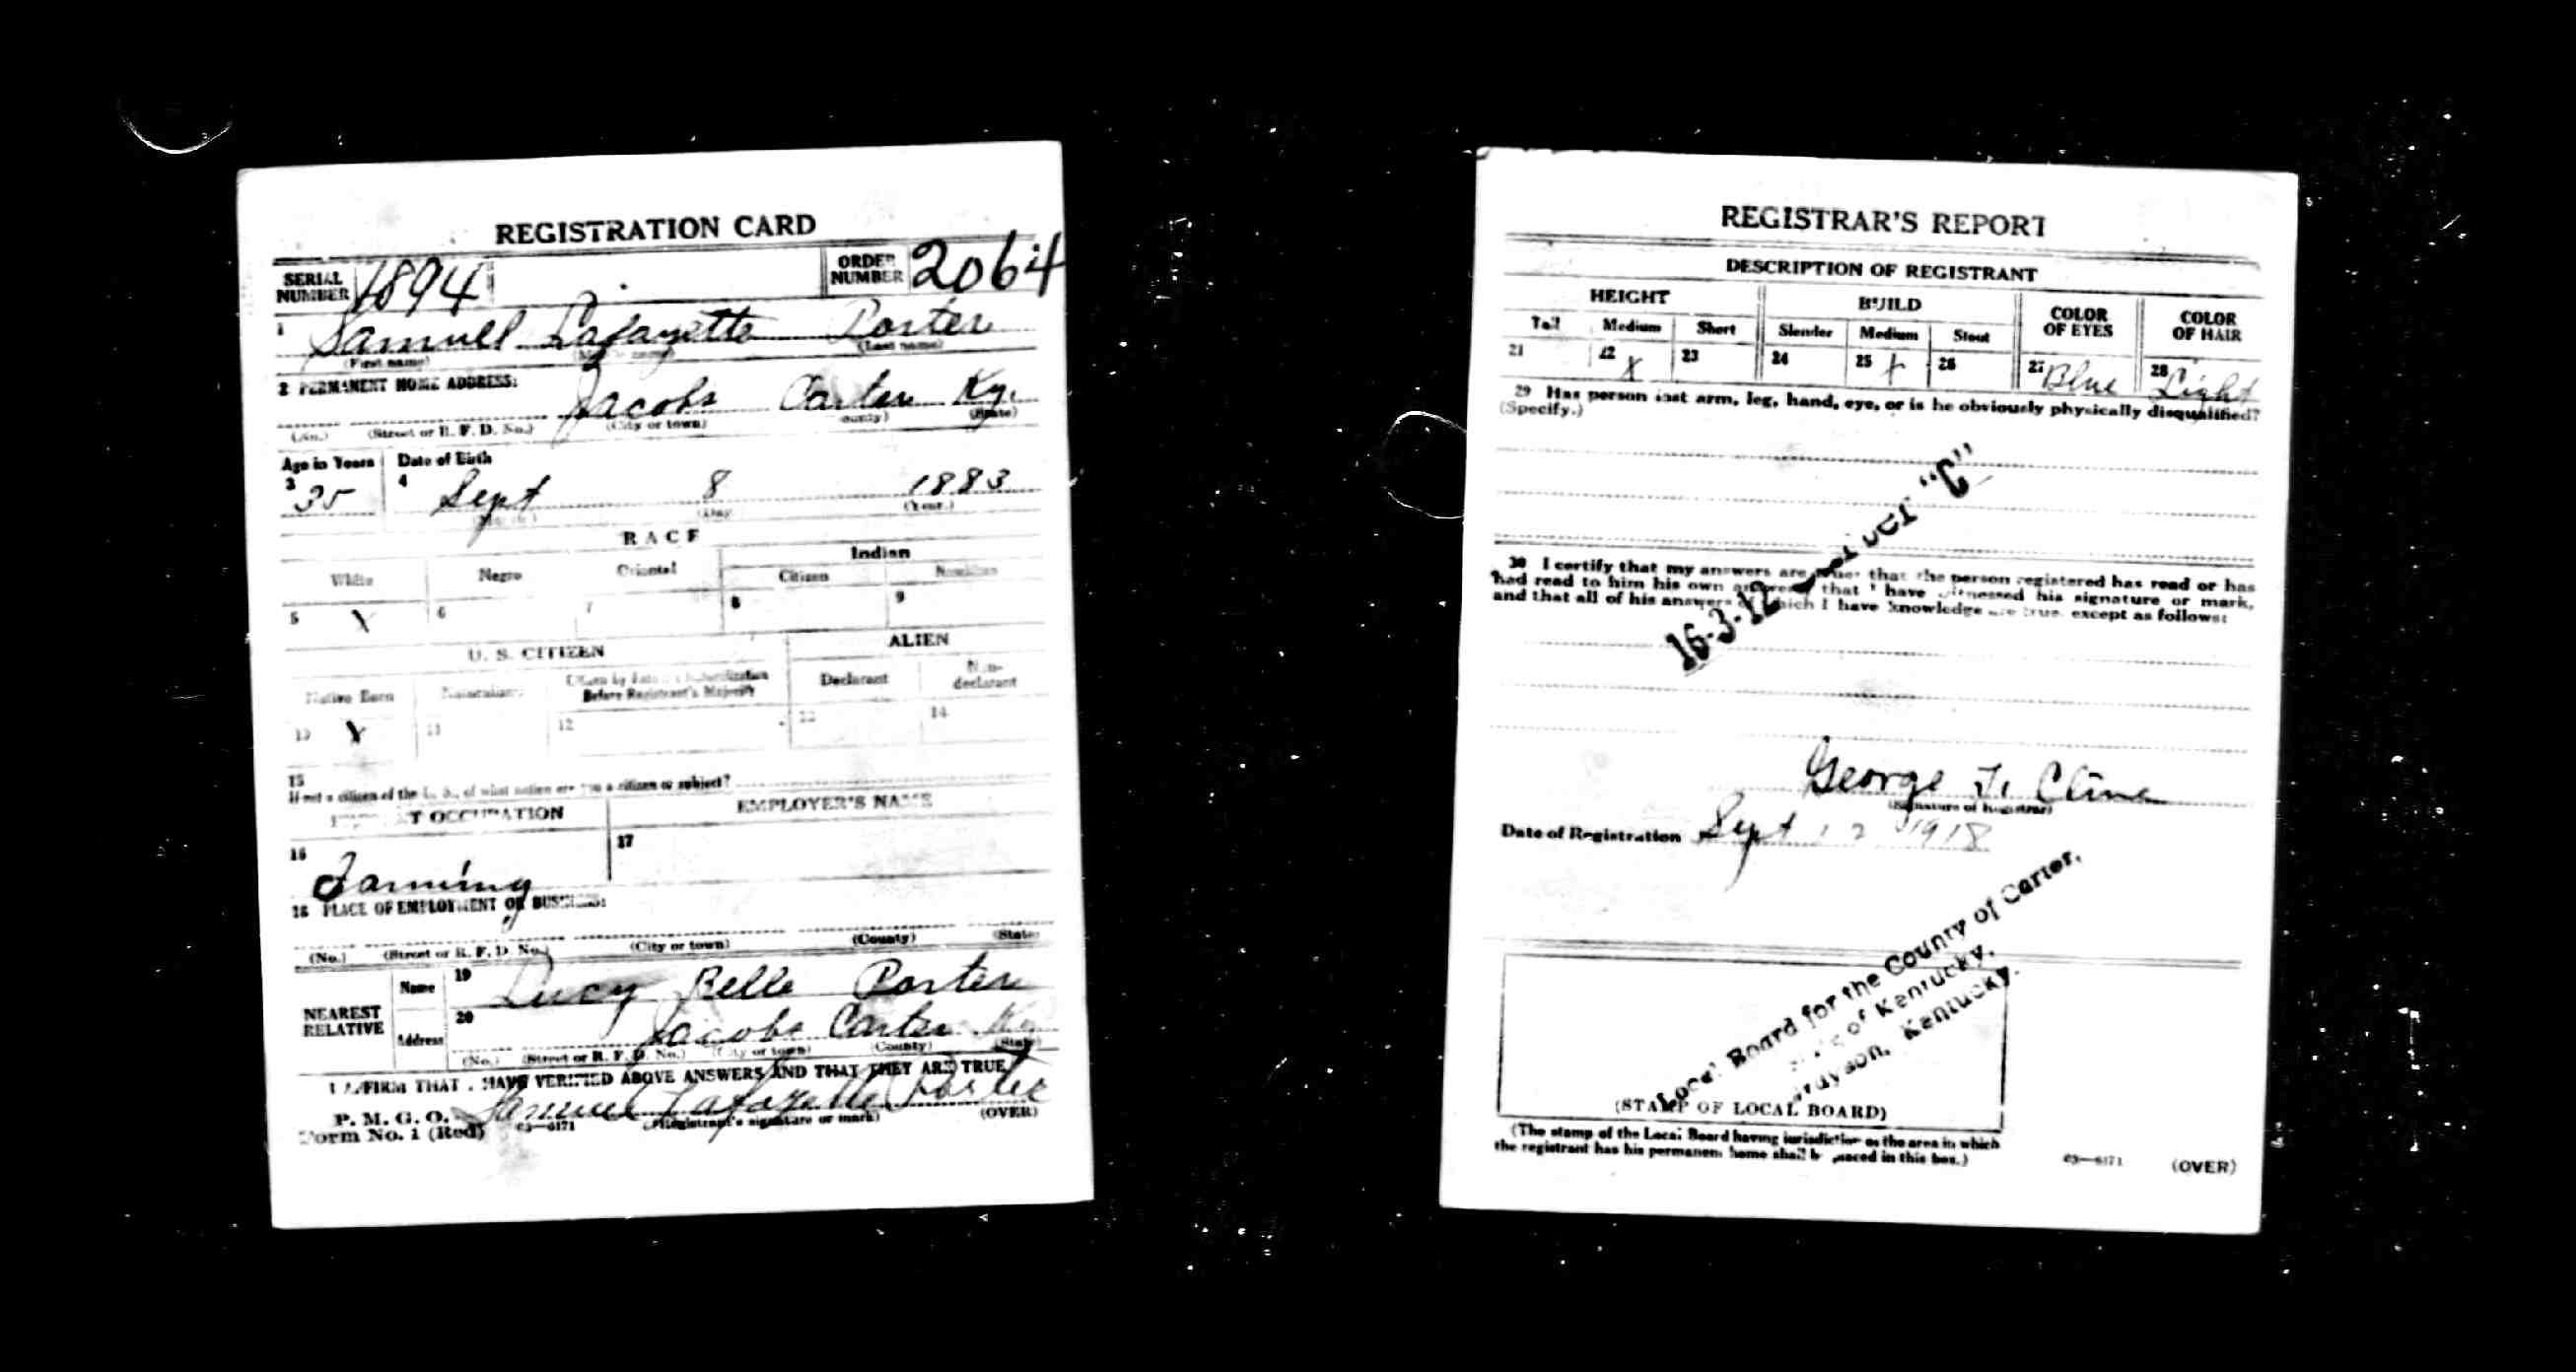 REGISTRATION CARD
SERIAL NUMBER 1894 ORDER NUMBER 2064
1 Samuel Lafayette Porter
(First name) (Middle name) (Last name)
2 PERMANENT HOME ADDRESS:
Jacobs Carter Ky.
(No.) (Street or R. F. D. No.) (City or town) (County) (State)
Age in Years Date of Birth
3 35 4 Sept 8 1883
(Month.) (Day) (Year.)
RACE
White Negro Oriental Indian
Citizen Noncitizen
5 X 6 7 8 9
U. S. CITIZEN ALIEN
Native Born Naturalized Citizen by Father's Naturalization Before Registrant's Majority Declarant Non-declarant
10 X 11 12 13 14
15
If not a citizen of the U. S., of what nation are you a citizen or subject?
PRESENT OCCUPATION EMPLOYER'S NAME
16 Farming 17
18 PLACE OF EMPLOYMENT OR BUSINESS:
(No.) (Street or R. F. D. No.) (City or town) (County) (State)
NEAREST RELATIVE
Name 19 Lucy Belle Porter
Address 20 Jacobs Carter Ky
(No.) (Street or R. F. D. No.) (City or town) (County) (State)
I AFFIRM THAT I HAVE VERIFIED ABOVE ANSWERS AND THAT THEY ARE TRUE
P. M. G. O.
Form No. 1 (Red) 03—6171 Samuel Lafayette Porter
(Registrant's signature or mark) (OVER)
REGISTRAR'S REPORT
DESCRIPTION OF REGISTRANT
HEIGHT BUILD COLOR OF EYES COLOR OF HAIR
Tall Medium Short Slender Medium Stout
21 22 X 23 24 25 X 26 27 Blue 28 Light
29 Has person lost arm, leg, hand, eye, or is he obviously physically disqualified?
(Specify.)
30 I certify that my answers are true that the person registered has read or has
had read to him his own answers that I have witnessed his signature or mark,
and that all of his answers of which I have knowledge are true, except as follows:
16-3-12 "C"
George F. Cline
(Signature of Registrar)
Date of Registration Sept 12 1918
Local Board for the County of Carter,
State of Kentucky,
Grayson, Kentucky.
(STAMP OF LOCAL BOARD)
(The stamp of the Local Board having jurisdiction of the area in which
the registrant has his permanent home shall be placed in this box.)
03—6171 (OVER)